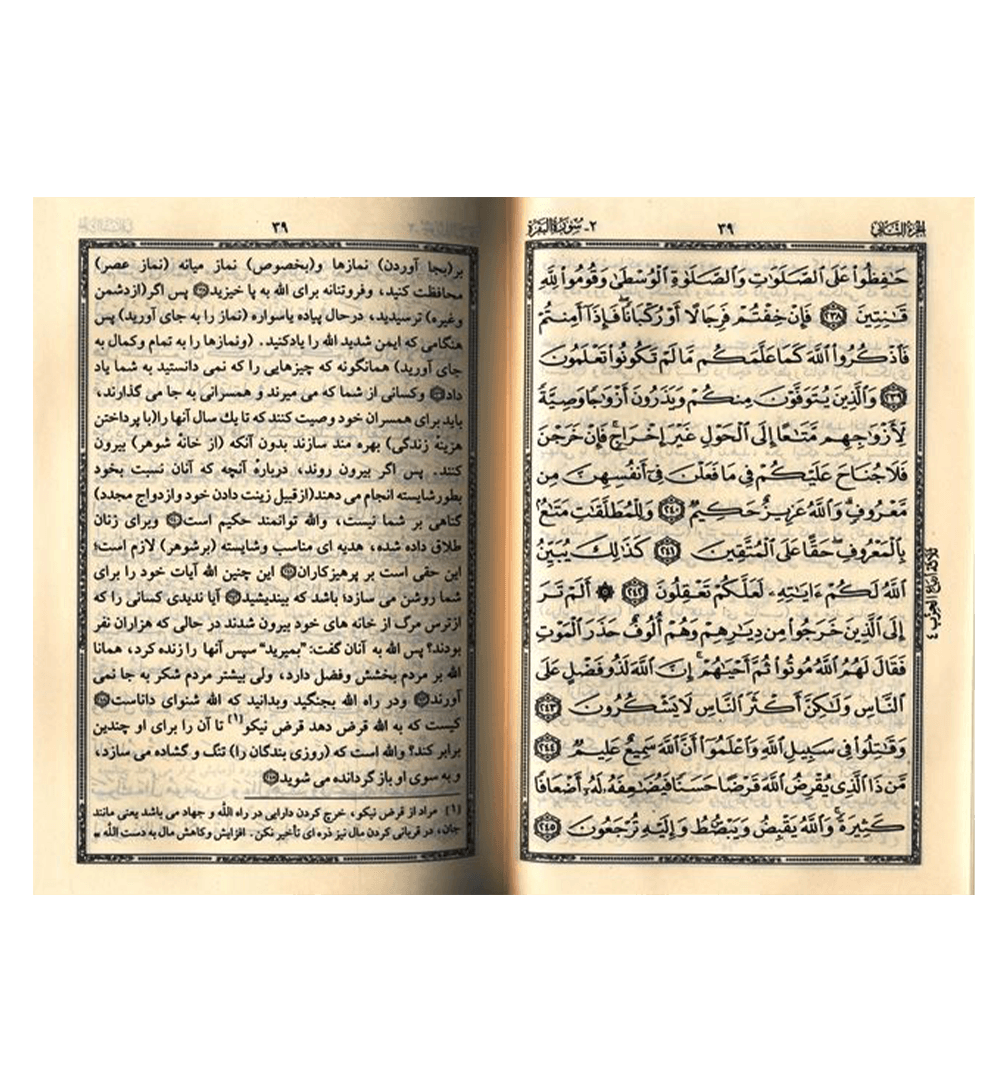 الجزء الثاني
٣٩
٢- سورة البقرة
حَـٰفِظُوا۟ عَلَى ٱلصَّلَوَٰتِ وَٱلصَّلَوٰةِ ٱلْوُسْطَىٰ وَقُومُوا۟ لِلَّهِ
قَـٰنِتِينَ ﴿٢٣٨﴾ فَإِنْ خِفْتُمْ فَرِجَالًا أَوْ رُكْبَانًا ۖ فَإِذَآ أَمِنتُمْ
فَٱذْكُرُوا۟ ٱللَّهَ كَمَا عَلَّمَكُم مَّا لَمْ تَكُونُوا۟ تَعْلَمُونَ
﴿٢٣٩﴾ وَٱلَّذِينَ يُتَوَفَّوْنَ مِنكُمْ وَيَذَرُونَ أَزْوَٰجًا وَصِيَّةً
لِّأَزْوَٰجِهِم مَّتَـٰعًا إِلَى ٱلْحَوْلِ غَيْرَ إِخْرَاجٍ ۚ فَإِنْ خَرَجْنَ
فَلَا جُنَاحَ عَلَيْكُمْ فِى مَا فَعَلْنَ فِىٓ أَنفُسِهِنَّ مِن
مَّعْرُوفٍ ۗ وَٱللَّهُ عَزِيزٌ حَكِيمٌ ﴿٢٤٠﴾ وَلِلْمُطَلَّقَـٰتِ مَتَـٰعٌۢ
بِٱلْمَعْرُوفِ ۖ حَقًّا عَلَى ٱلْمُتَّقِينَ ﴿٢٤١﴾ كَذَٰلِكَ يُبَيِّنُ
ٱللَّهُ لَكُمْ ءَايَـٰتِهِۦ لَعَلَّكُمْ تَعْقِلُونَ ﴿٢٤٢﴾ ۞ أَلَمْ تَرَ
إِلَى ٱلَّذِينَ خَرَجُوا۟ مِن دِيَـٰرِهِمْ وَهُمْ أُلُوفٌ حَذَرَ ٱلْمَوْتِ
فَقَالَ لَهُمُ ٱللَّهُ مُوتُوا۟ ثُمَّ أَحْيَـٰهُمْ ۚ إِنَّ ٱللَّهَ لَذُو فَضْلٍ عَلَى
ٱلنَّاسِ وَلَـٰكِنَّ أَكْثَرَ ٱلنَّاسِ لَا يَشْكُرُونَ ﴿٢٤٣﴾
وَقَـٰتِلُوا۟ فِى سَبِيلِ ٱللَّهِ وَٱعْلَمُوٓا۟ أَنَّ ٱللَّهَ سَمِيعٌ عَلِيمٌ ﴿٢٤٤﴾
مَّن ذَا ٱلَّذِى يُقْرِضُ ٱللَّهَ قَرْضًا حَسَنًا فَيُضَـٰعِفَهُۥ لَهُۥٓ أَضْعَافًا
كَثِيرَةً ۚ وَٱللَّهُ يَقْبِضُ وَيَبْصُۜطُ وَإِلَيْهِ تُرْجَعُونَ ﴿٢٤٥﴾
ثلاثة أرباع الحزب ٤
٣٩
بر(بجا آوردن) نمازها و(بخصوص) نماز میانه (نماز عصر)
محافظت کنید، وفروتنانه برای الله به پا خیزید﴿٢٣٨﴾ پس اگر(ازدشمن
وغیره) ترسیدید، درحال پیاده یاسواره (نماز را به جای آورید) پس
هنگامی که ایمن شدید الله را یادکنید. (ونمازها را به تمام وکمال به
جای آورید) همانگونه که چیزهایی را که نمی دانستید به شما یاد
داد﴿٢٣٩﴾ وکسانی از شما که می میرند و همسرانی به جا می گذارند،
باید برای همسران خود وصیت کنند که تا یك سال آنها را(با پرداختن
هزینهٔ زندگی) بهره مند سازند بدون آنکه (از خانهٔ شوهر) بیرون
کنند. پس اگر بیرون روند، دربارهٔ آنچه که آنان نسبت بخود
بطورشایسته انجام می دهند(ازقبیل زینت دادن خود وازدواج مجدد)
گناهی بر شما نیست، والله توانمند حکیم است﴿٢٤٠﴾ وبرای زنان
طلاق داده شده، هدیه ای مناسب وشایسته (برشوهر) لازم است؛
این حقی است بر پرهیزکاران﴿٢٤١﴾ این چنین الله آیات خود را برای
شما روشن می سازد؛ باشد که بیندیشید﴿٢٤٢﴾ آیا ندیدی کسانی را که
ازترس مرگ از خانه های خود بیرون شدند در حالی که هزاران نفر
بودند؟ پس الله به آنان گفت: "بمیرید" سپس آنها را زنده کرد، همانا
الله بر مردم بخشش وفضل دارد، ولی بیشتر مردم شکر به جا نمی
آورند﴿٢٤٣﴾ ودر راه الله بجنگید وبدانید که الله شنوای داناست﴿٢٤٤﴾
کیست که به الله قرض دهد قرض نیکو[١] تا آن را برای او چندین
برابر کند؟ والله است که (روزی بندگان را) تنگ و گشاده می سازد،
و به سوی او باز گردانده می شوید﴿٢٤٥﴾
[١] مراد از قرض نیکو، خرج کردن دارایی در راه الله و جهاد می باشد یعنی مانند
جان، در قربانی کردن مال نیز ذره ای تأخیر نکن. افزایش وکاهش مال به دست الله